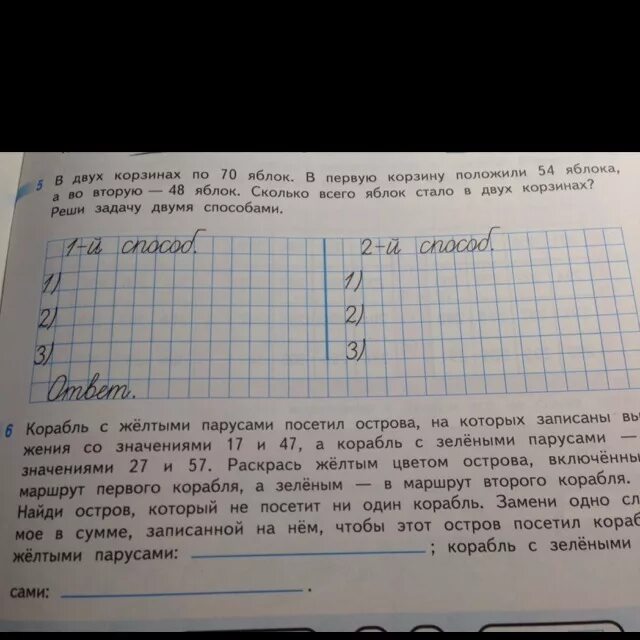 5 В двух корзинах по 70 яблок. В первую корзину положили 54 яблока,
а во вторую — 48 яблок. Сколько всего яблок стало в двух корзинах?
Реши задачу двумя способами.
1-й способ. 2-й способ.
1) 1)
2) 2)
3) 3)
Ответ.
6 Корабль с жёлтыми парусами посетил острова, на которых записаны вы
жения со значениями 17 и 47, а корабль с зелёными парусами —
значениями 27 и 57. Раскрась жёлтым цветом острова, включённы
маршрут первого корабля, а зелёным — в маршрут второго корабля.
Найди остров, который не посетит ни один корабль. Замени одно сл
мое в сумме, записанной на нём, чтобы этот остров посетил кораб
жёлтыми парусами: ; корабль с зелёными
сами: .